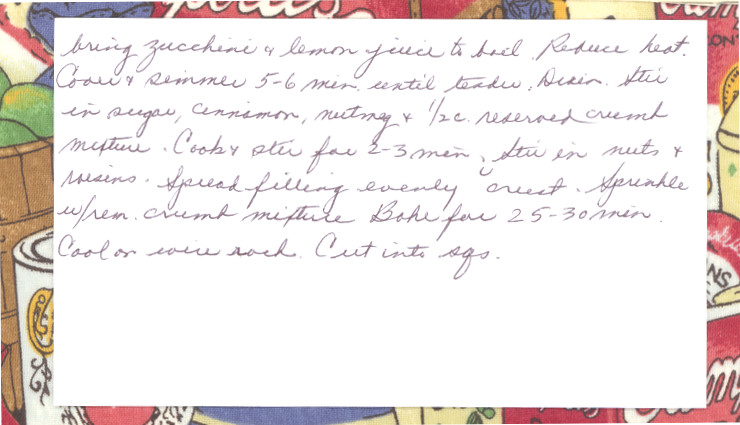 bring zucchini & lemon juice to boil. Reduce heat.
Cover & simmer 5-6 min. until tender. Drain. Stir
in sugar, cinnamon, nutmeg & 1/2 c. reserved crumb
mixture. Cook & stir for 2-3 min. Stir in nuts &
raisins. Spread filling evenly crust. Sprinkle
w/rem. crumb mixture Bake for 25-30 min.
Cool on wire rack. Cut into sqs.